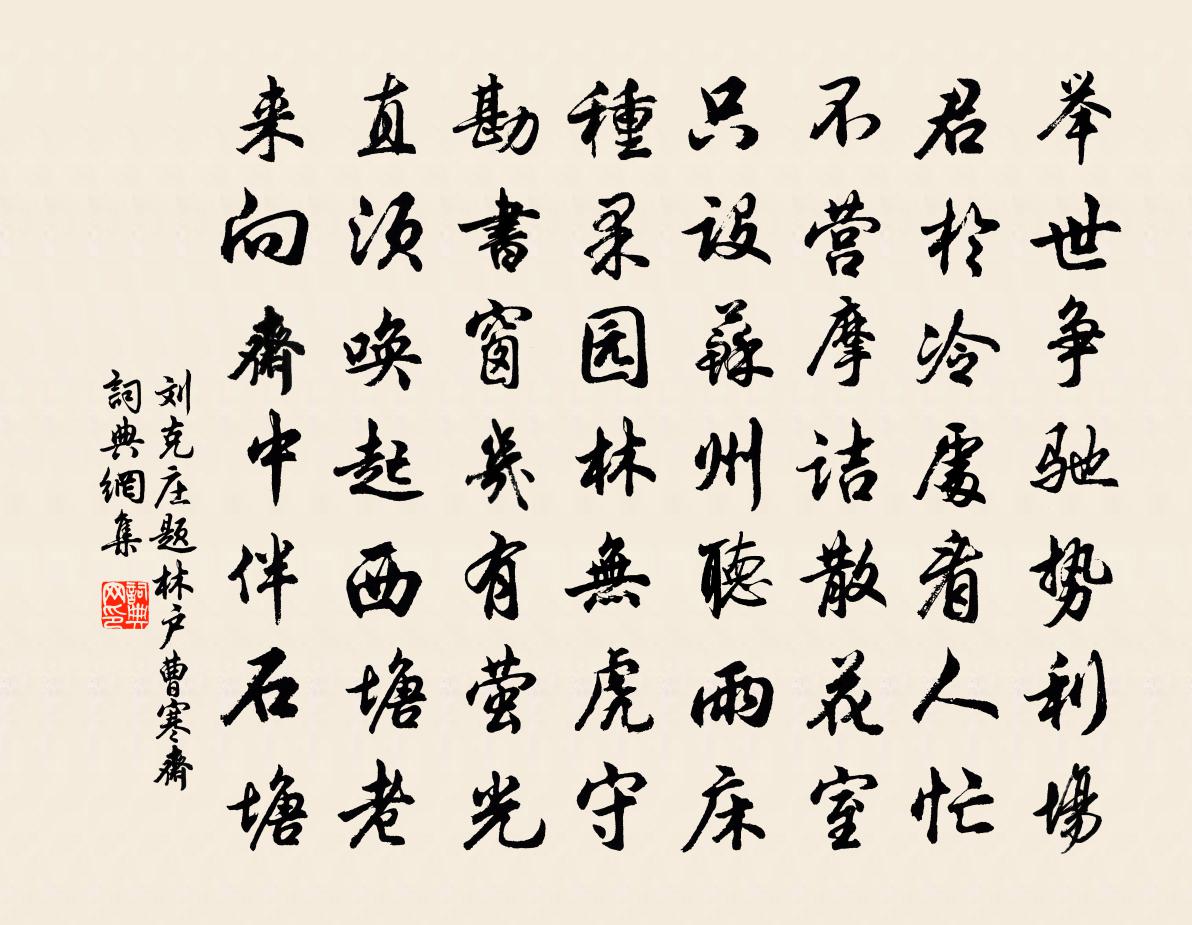 举世争驰势利場
君於冷處看人忙
不营摩诘散花室
只设蘇州聽雨床
種果园林無虎守
勘書窗幾有萤光
直须唤起西塘老
来向齋中伴石塘
刘克庄题林户曹寒齋
詞典網集
詞典网印